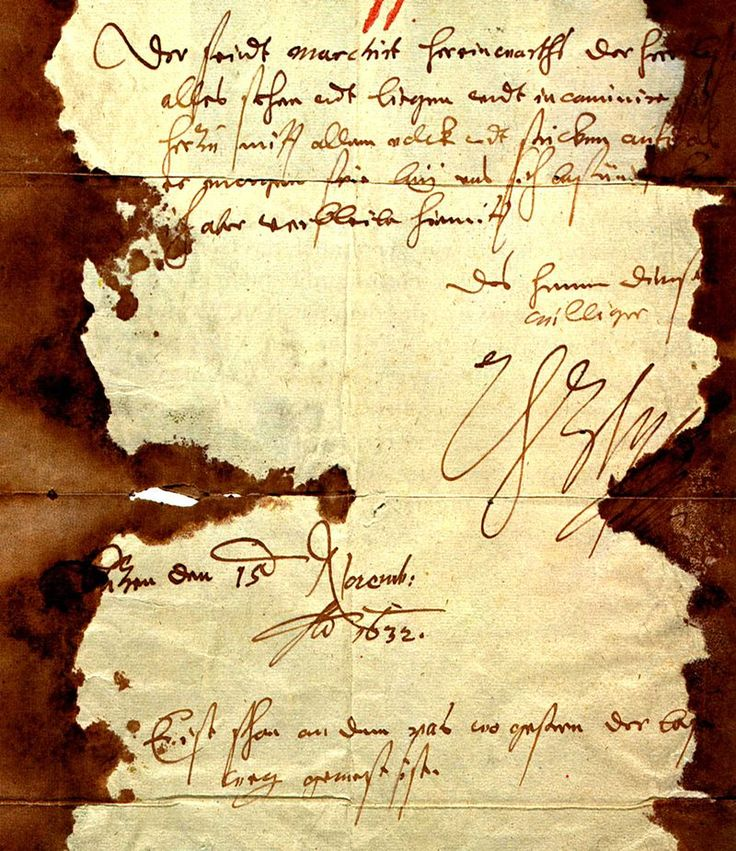 Der feindt marchirt hereinwarths der herr
alles stehen undt liegen undt incaminire
herzu mitt allem volck undt stücken
er morgen frie bey uns sich
ich aber verbleibe hiermitt
Des herren dienst
williger
den 15 Novemb:
Ao 1632.
Er ist schon an dem pas wo gestern der
weg gewest ist.